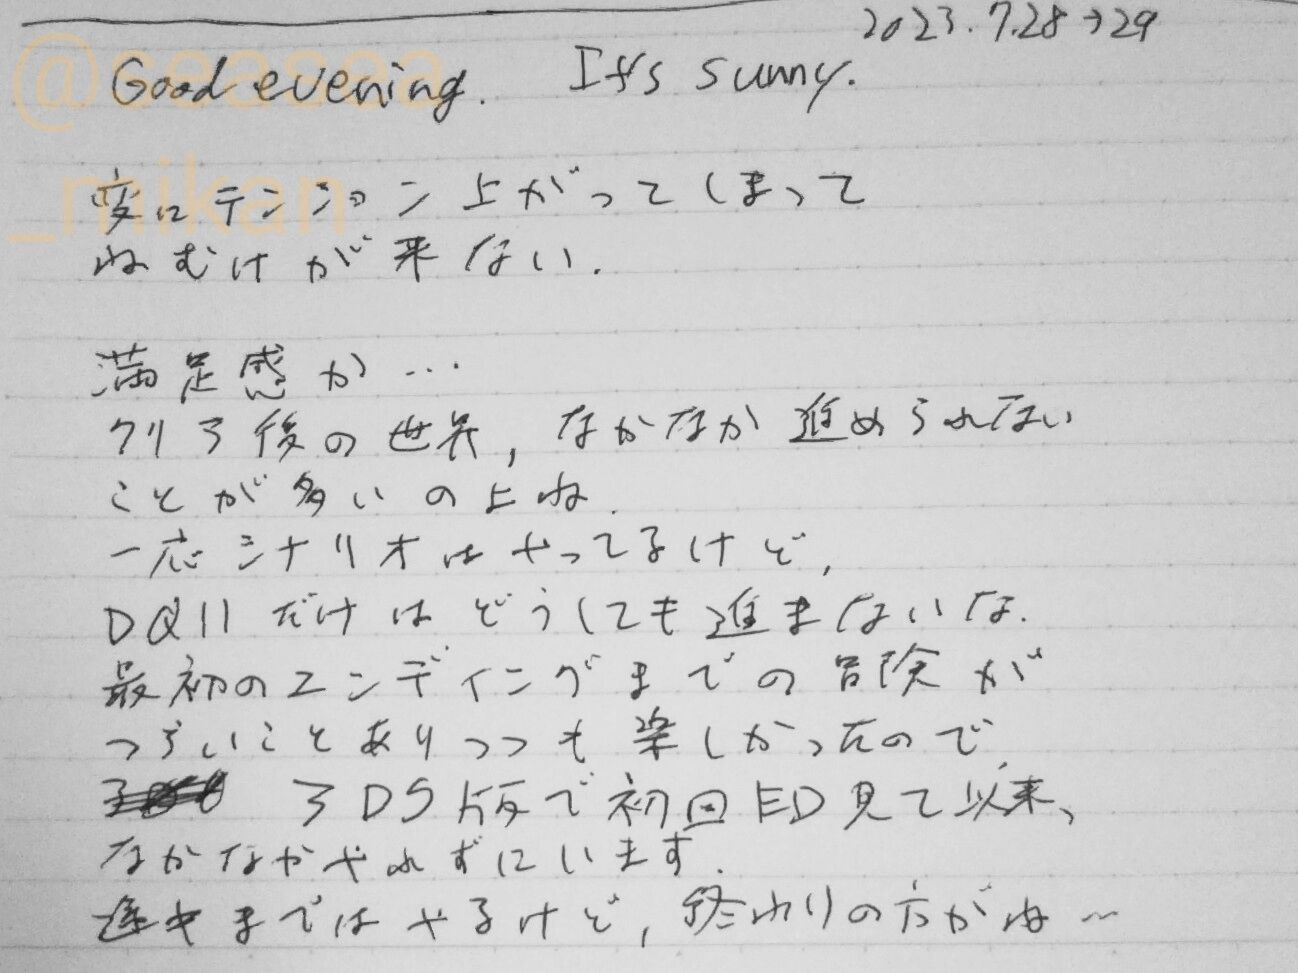 2023.7.28→29
Good evening. It's sunny.
@seasea
_mikan
変にテンション上がってしまって
ねむけが来ない.
満足感か…
クリア後の世界,なかなか進められない
ことが多いのよね.
一応シナリオはやってるけど,
DQ11だけはどうしても進まないな.
最初のエンディングまでの冒険が
つらいことありつつも楽しかったので,
3DS版で初回ED見て以来、
なかなかやれずにいます.
途中まではやるけど,終わりの方がね〜